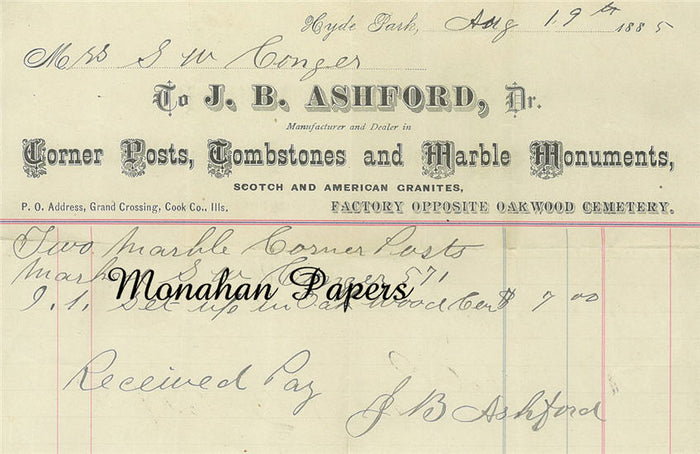 Hyde Park, Aug 19th 1885
Mrs S W Conger
To J. B. ASHFORD, Dr.
Manufacturer and Dealer in
Corner Posts, Tombstones and Marble Monuments,
SCOTCH AND AMERICAN GRANITES,
P. O. Address, Grand Crossing, Cook Co., Ills. FACTORY OPPOSITE OAKWOOD CEMETERY.
Two Marble Corner Posts
Mark S W Conger 571
Monahan Papers
Set up in Oak Wood Cem $ 7 00
Received Pay
J B Ashford